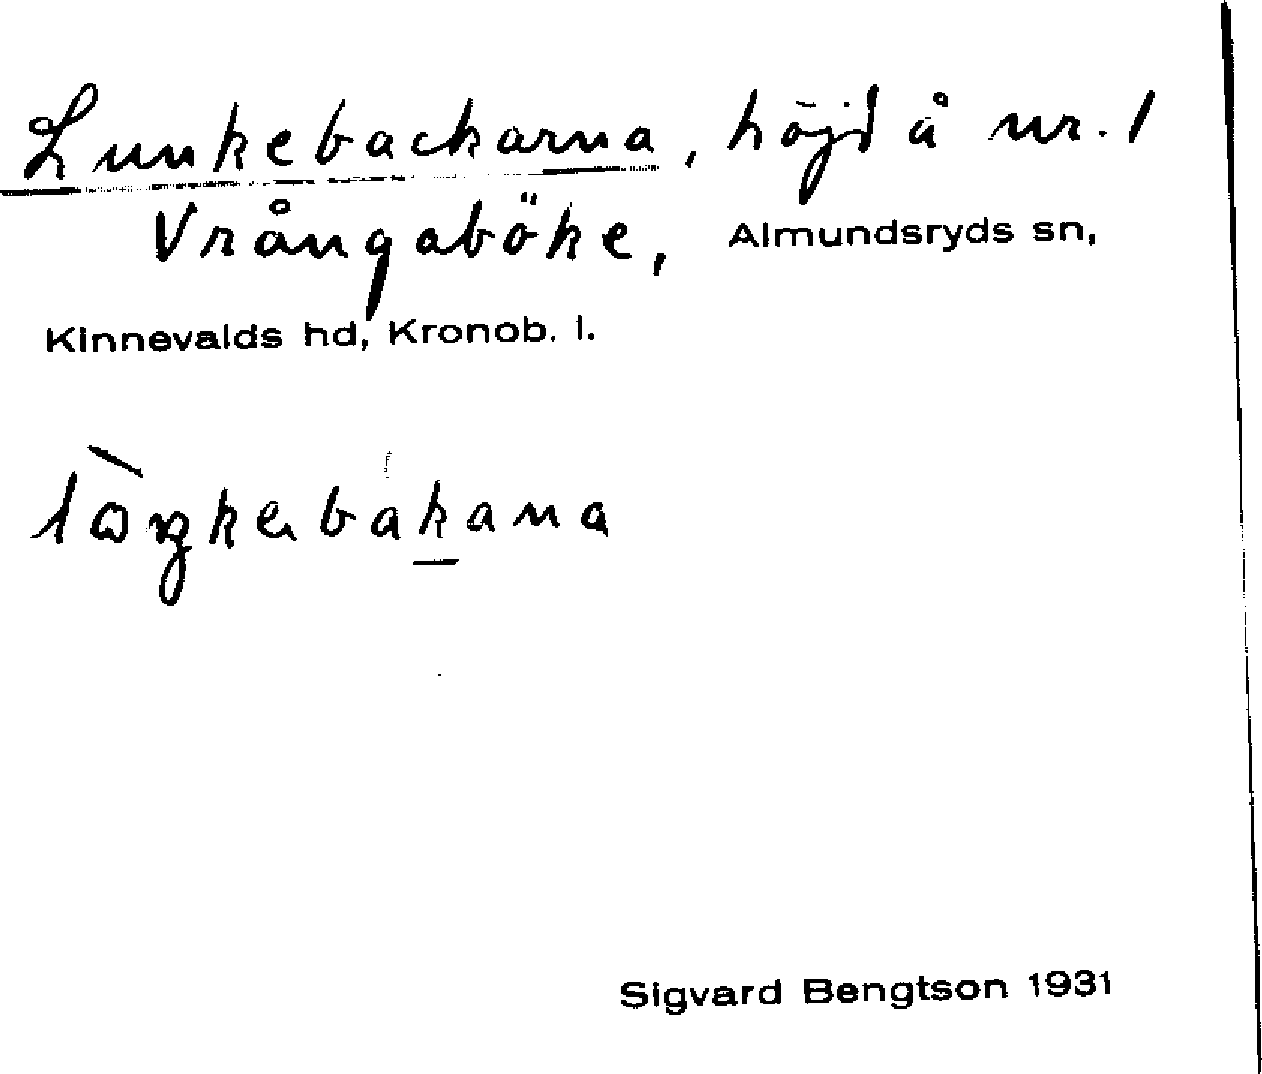 Lunkebackarna, höjd å nr. 1
Vrångaböke, Almundsryds sn,
Kinnevalds hd, Kronob. l.
Sigvard Bengtson 1931